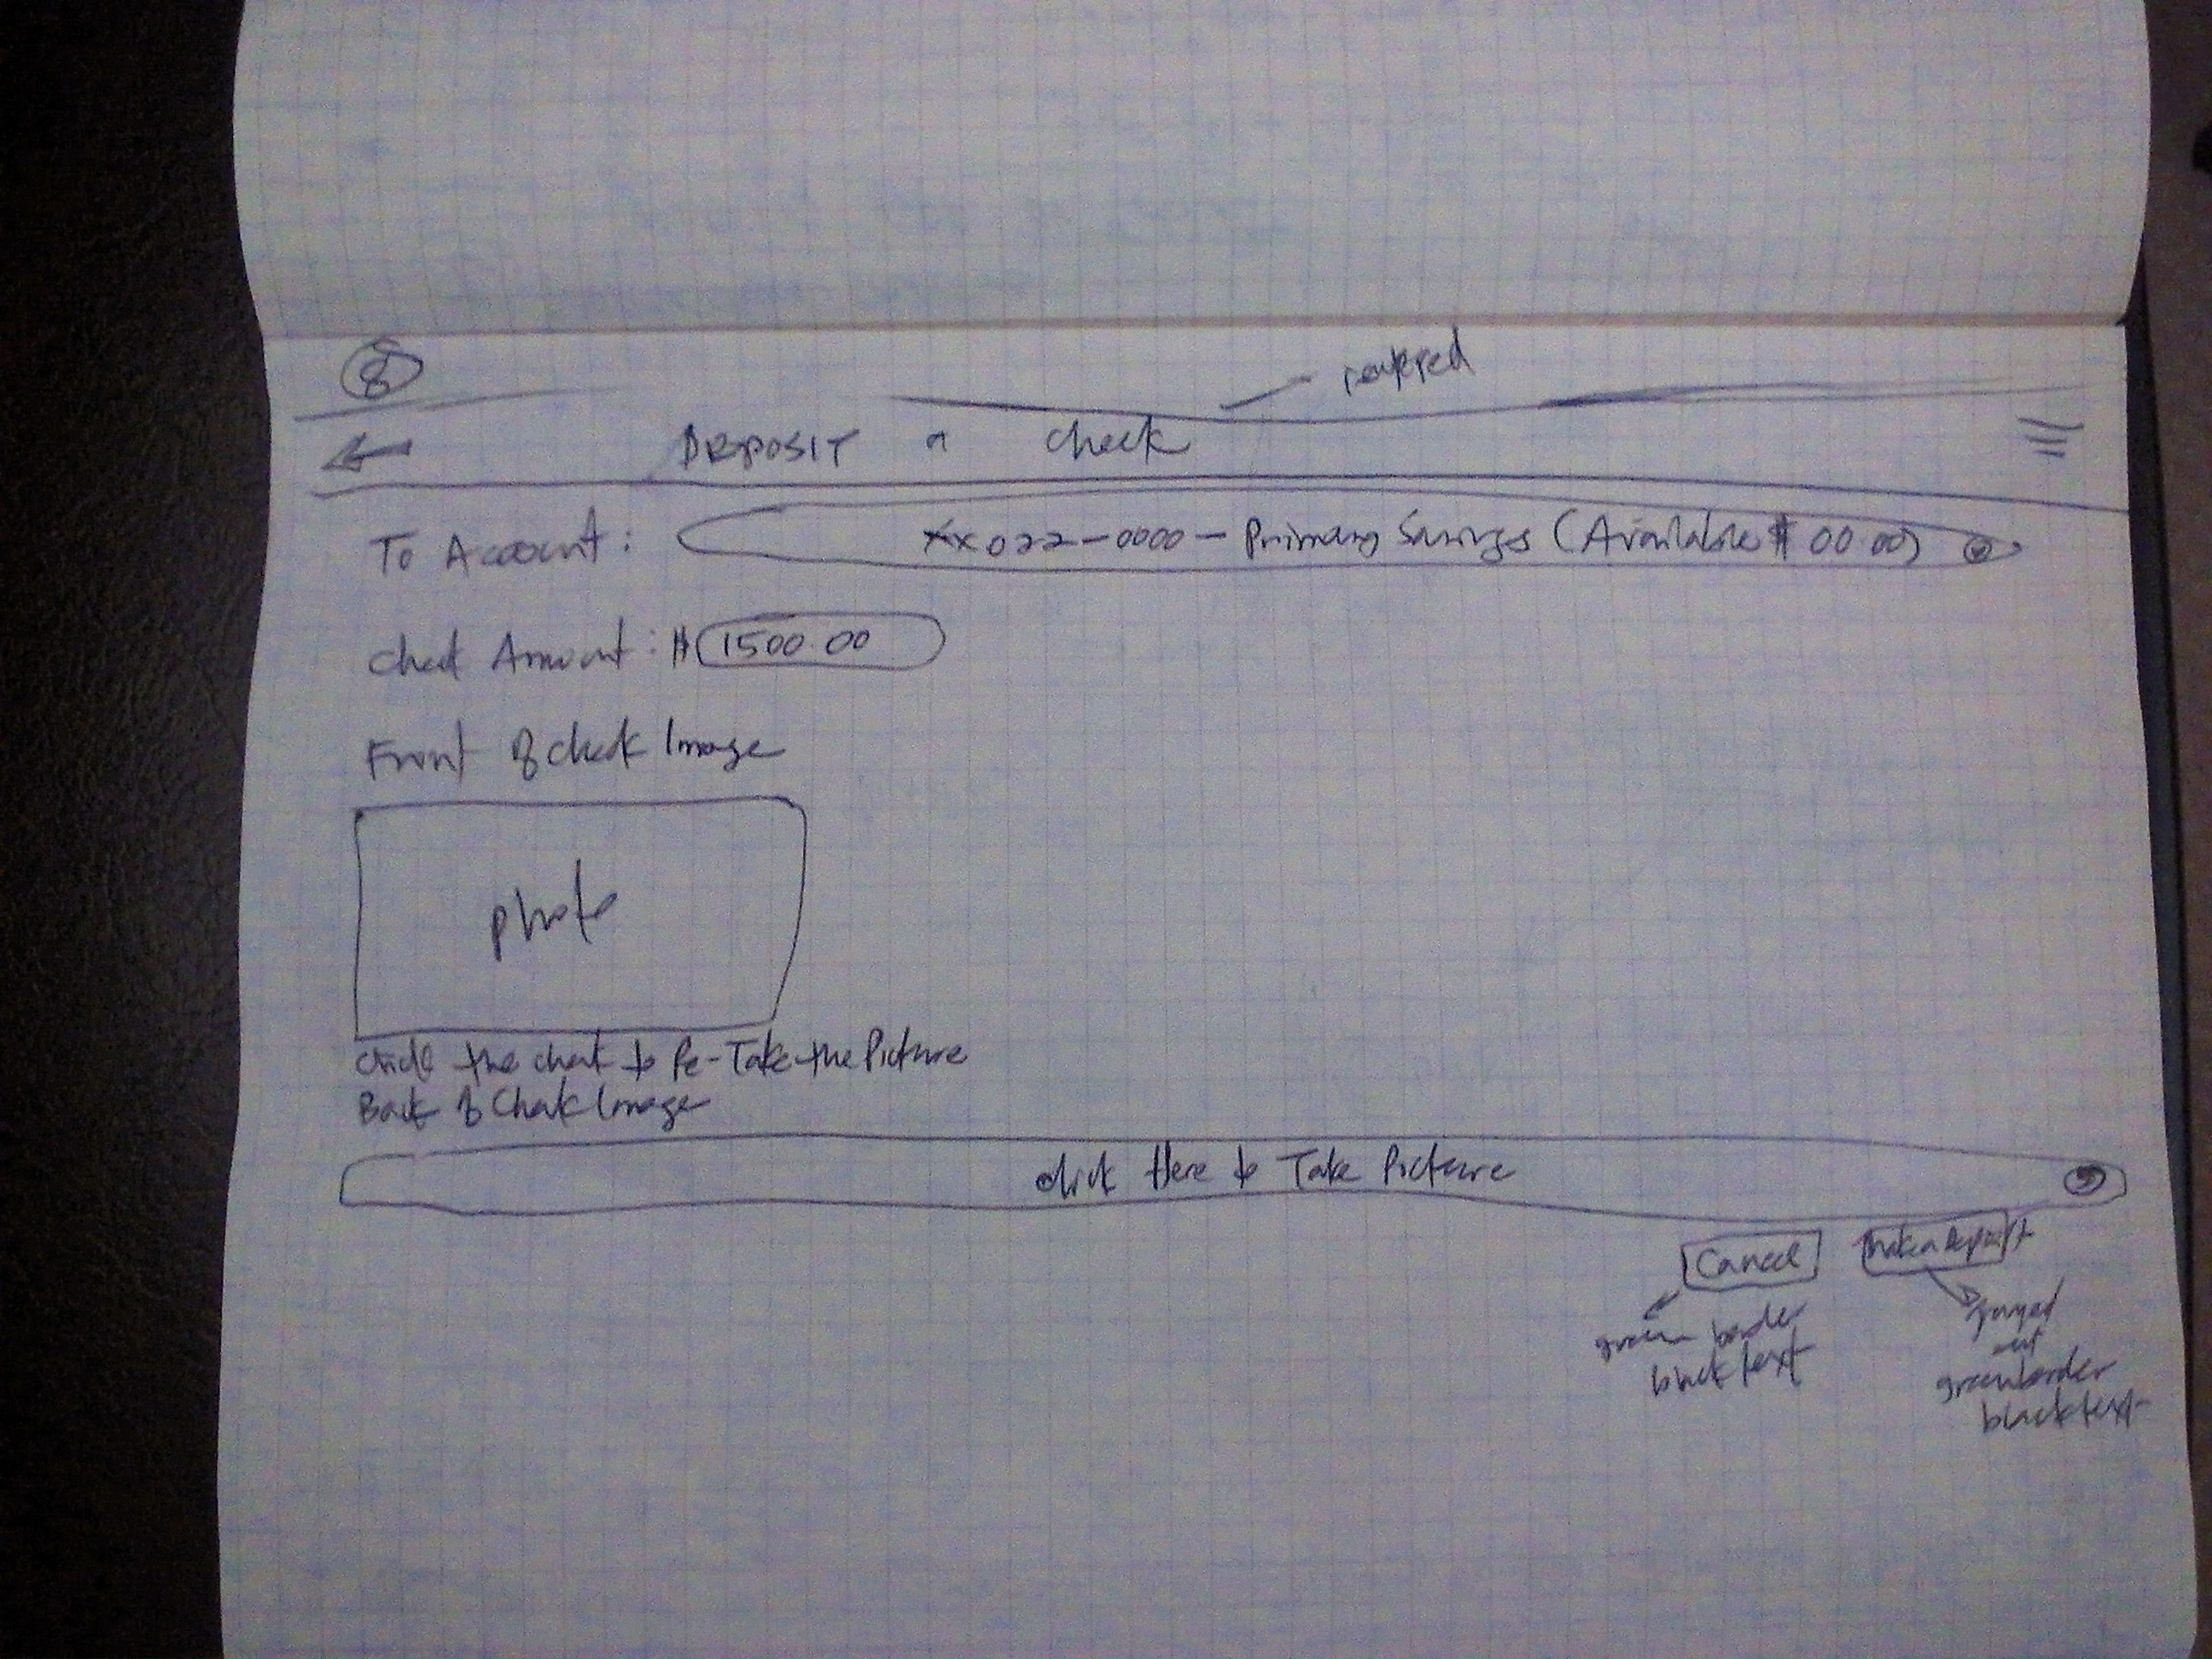 8
DEPOSIT a check
To Account: xx022-0000- Primary Savings (Available $ 00.00)
Check Amount: $ 1500.00
Front of check Image
photo
Click the check to Re-Take the Picture
Back of Check Image
click Here to Take Picture
Cancel Make a Deposit
green border
black text
grayed
out
green border
black text